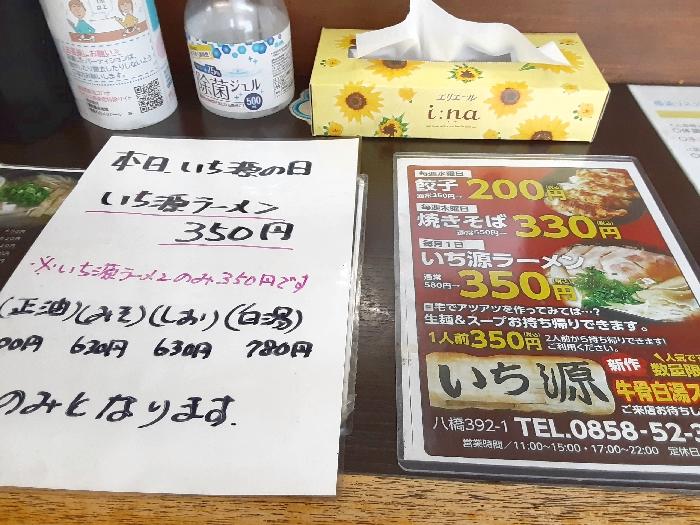 除菌ジェル
500
エリエール
i:na
本日、いち源の日
いち源ラーメン
350円
※いち源ラーメンのみ350円です
(正油)(みそ)(しおり)(白湯)
90円 630円 630円 780円
のみとなります.
毎週水曜日
餃子 200円
(税込)
通常350円→
毎週木曜日
焼きそば 330円
(税込)
通常550円→
毎月1日
いち源ラーメン
通常
580円→ 350円
(税込)
自宅でアツアツを作ってみては…?
生麺&スープお持ち帰りできます。
1人前350円
(税込)
2人前から持ち帰りできます!
ご利用ください。
いち源
新作
人気で
数量限
牛骨白湯
ご来店お待ちし
八橋392-1 TEL.0858-52-3
営業時間/11:00~15:00・17:00~22:00 定休日